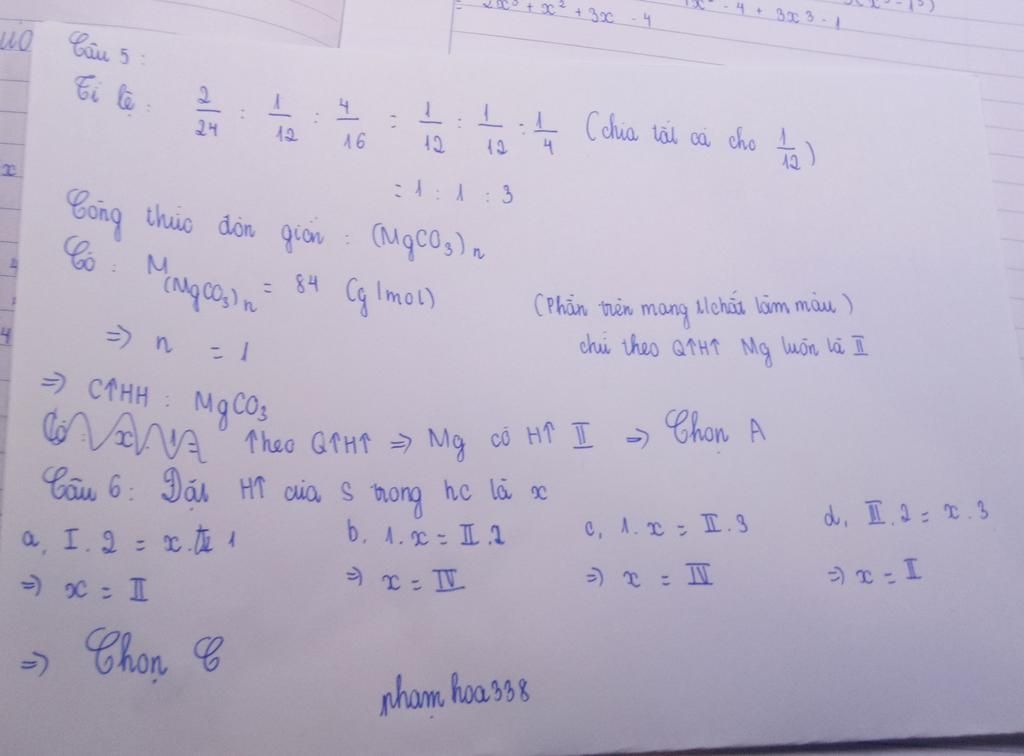 2x³ + x² + 3x - 4
- 4 + 3x3 - 1
Câu 5 :
Tỉ lệ : 2/24 : 1/12 : 4/16 = 1/12 : 1/12 : 1/4 (chia tất cả cho 1/12)
= 1 : 1 : 3
Công thức đơn giản : (MgCO₃)n
Có : M(MgCO₃)n = 84 (g/mol)
(Phần trên mang t/chất làm màu)
=> n = 1
chứ theo QTHT Mg luôn là II
=> CTHH : MgCO₃
Theo QTHT => Mg có HT II => Chọn A
Câu 6 : Đặt HT của S trong hc là x
a, I . 2 = x . 1
b, 1.x = II.2
c, 1.x = II.3
d, II.2 = x.3
=> x = II
=> x = IV
=> x =
=> x = I
=> Chọn C
phamhoa338